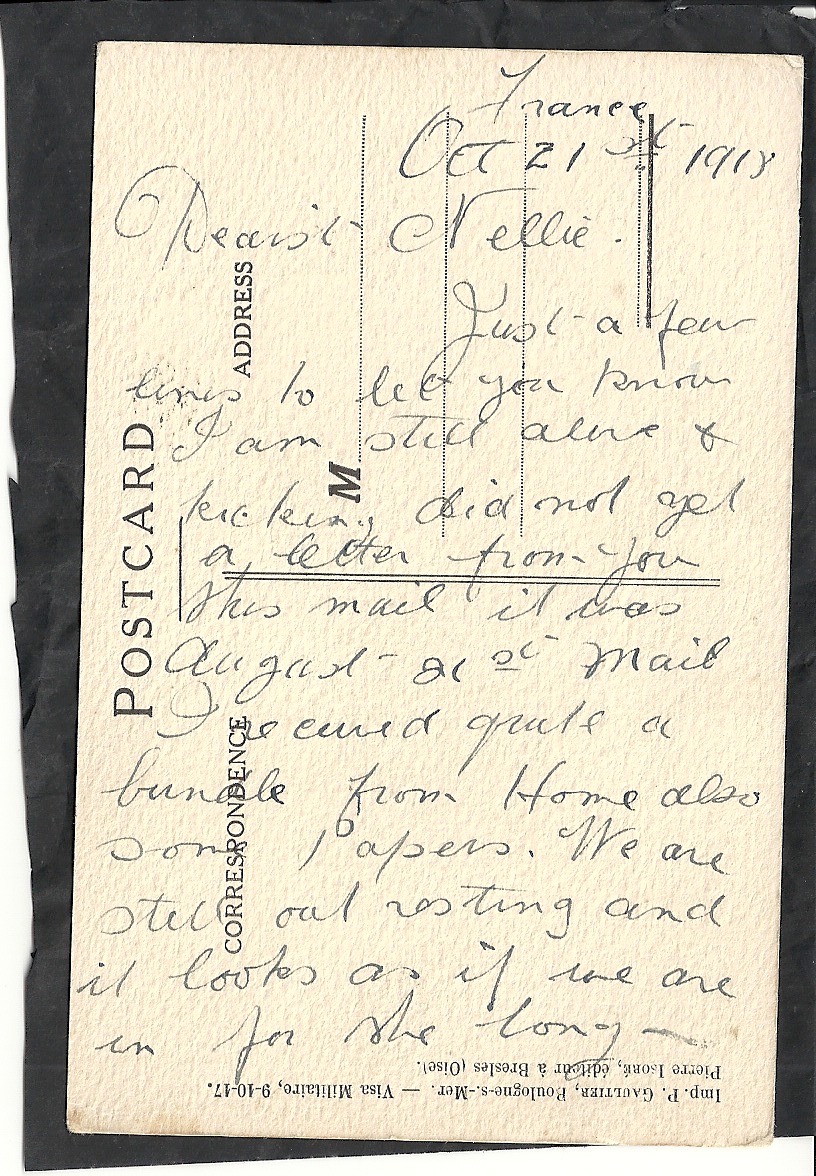 France
Oct 21st 1918
Dearist Nellie.
Just a few
lines to let you know
I am still alive &
kicking did not get
a letter from you
this mail it was
August 21st Mail
I recieved quite a
bundle from Home also
some Papers. We are
still out resting and
it looks as if we are
in for the long
POSTCARD
ADDRESS
M
CORRESPONDENCE
Imp. P. GAULTIER, Boulogne-s.-Mer. — Visa Militaire, 9-10-17.
Pierre ISORÉ, éditeur à Bresles (Oise).